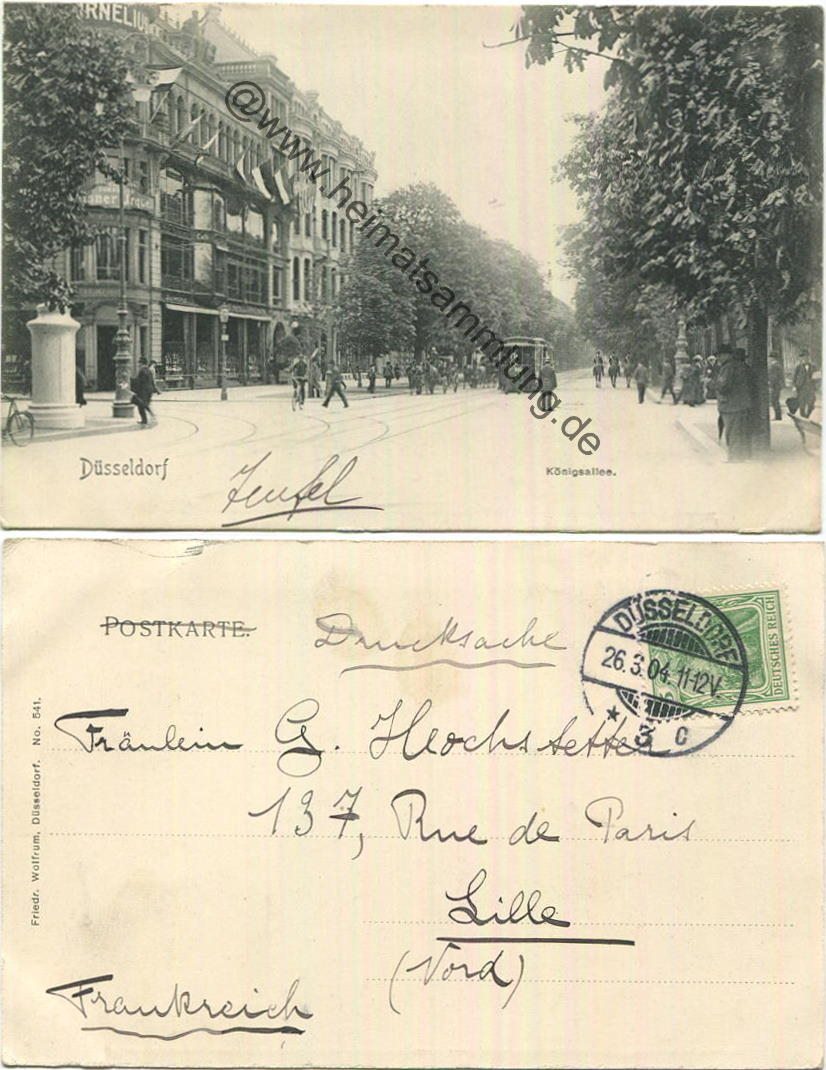 RNELIU
@www.heimatsammlung.de
Düsseldorf
Königsallee.
Teufel
POSTKARTE.
Drucksache
DÜSSELDORF
26.3.04.11-12V.
* 3 c
DEUTSCHES REICH
Fräulein G. Hochstetter
137, Rue de Paris
Lille
(Nord)
Frankreich
Friedr. Wolfrum, Düsseldorf. No. 541.